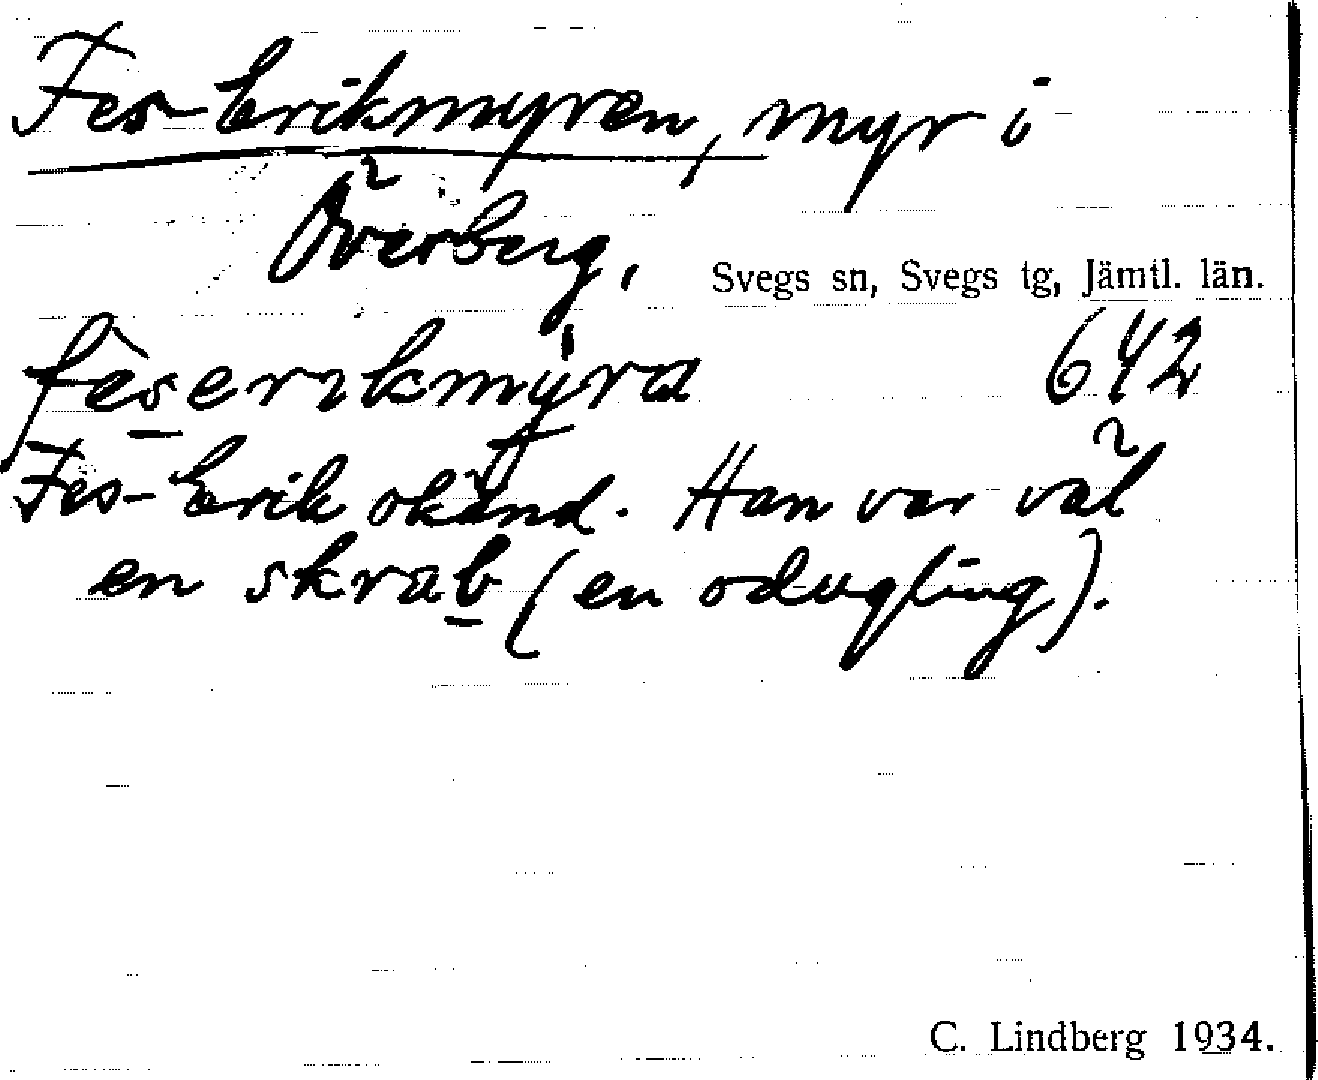 Fes-Erikmyren, myr i
Överberg,
Svegs sn, Svegs tg, Jämtl. län.
fèserikmýra 642
Fes-Erik okänd. Han var väl
en skrab (en odugling).
C. Lindberg 1934.